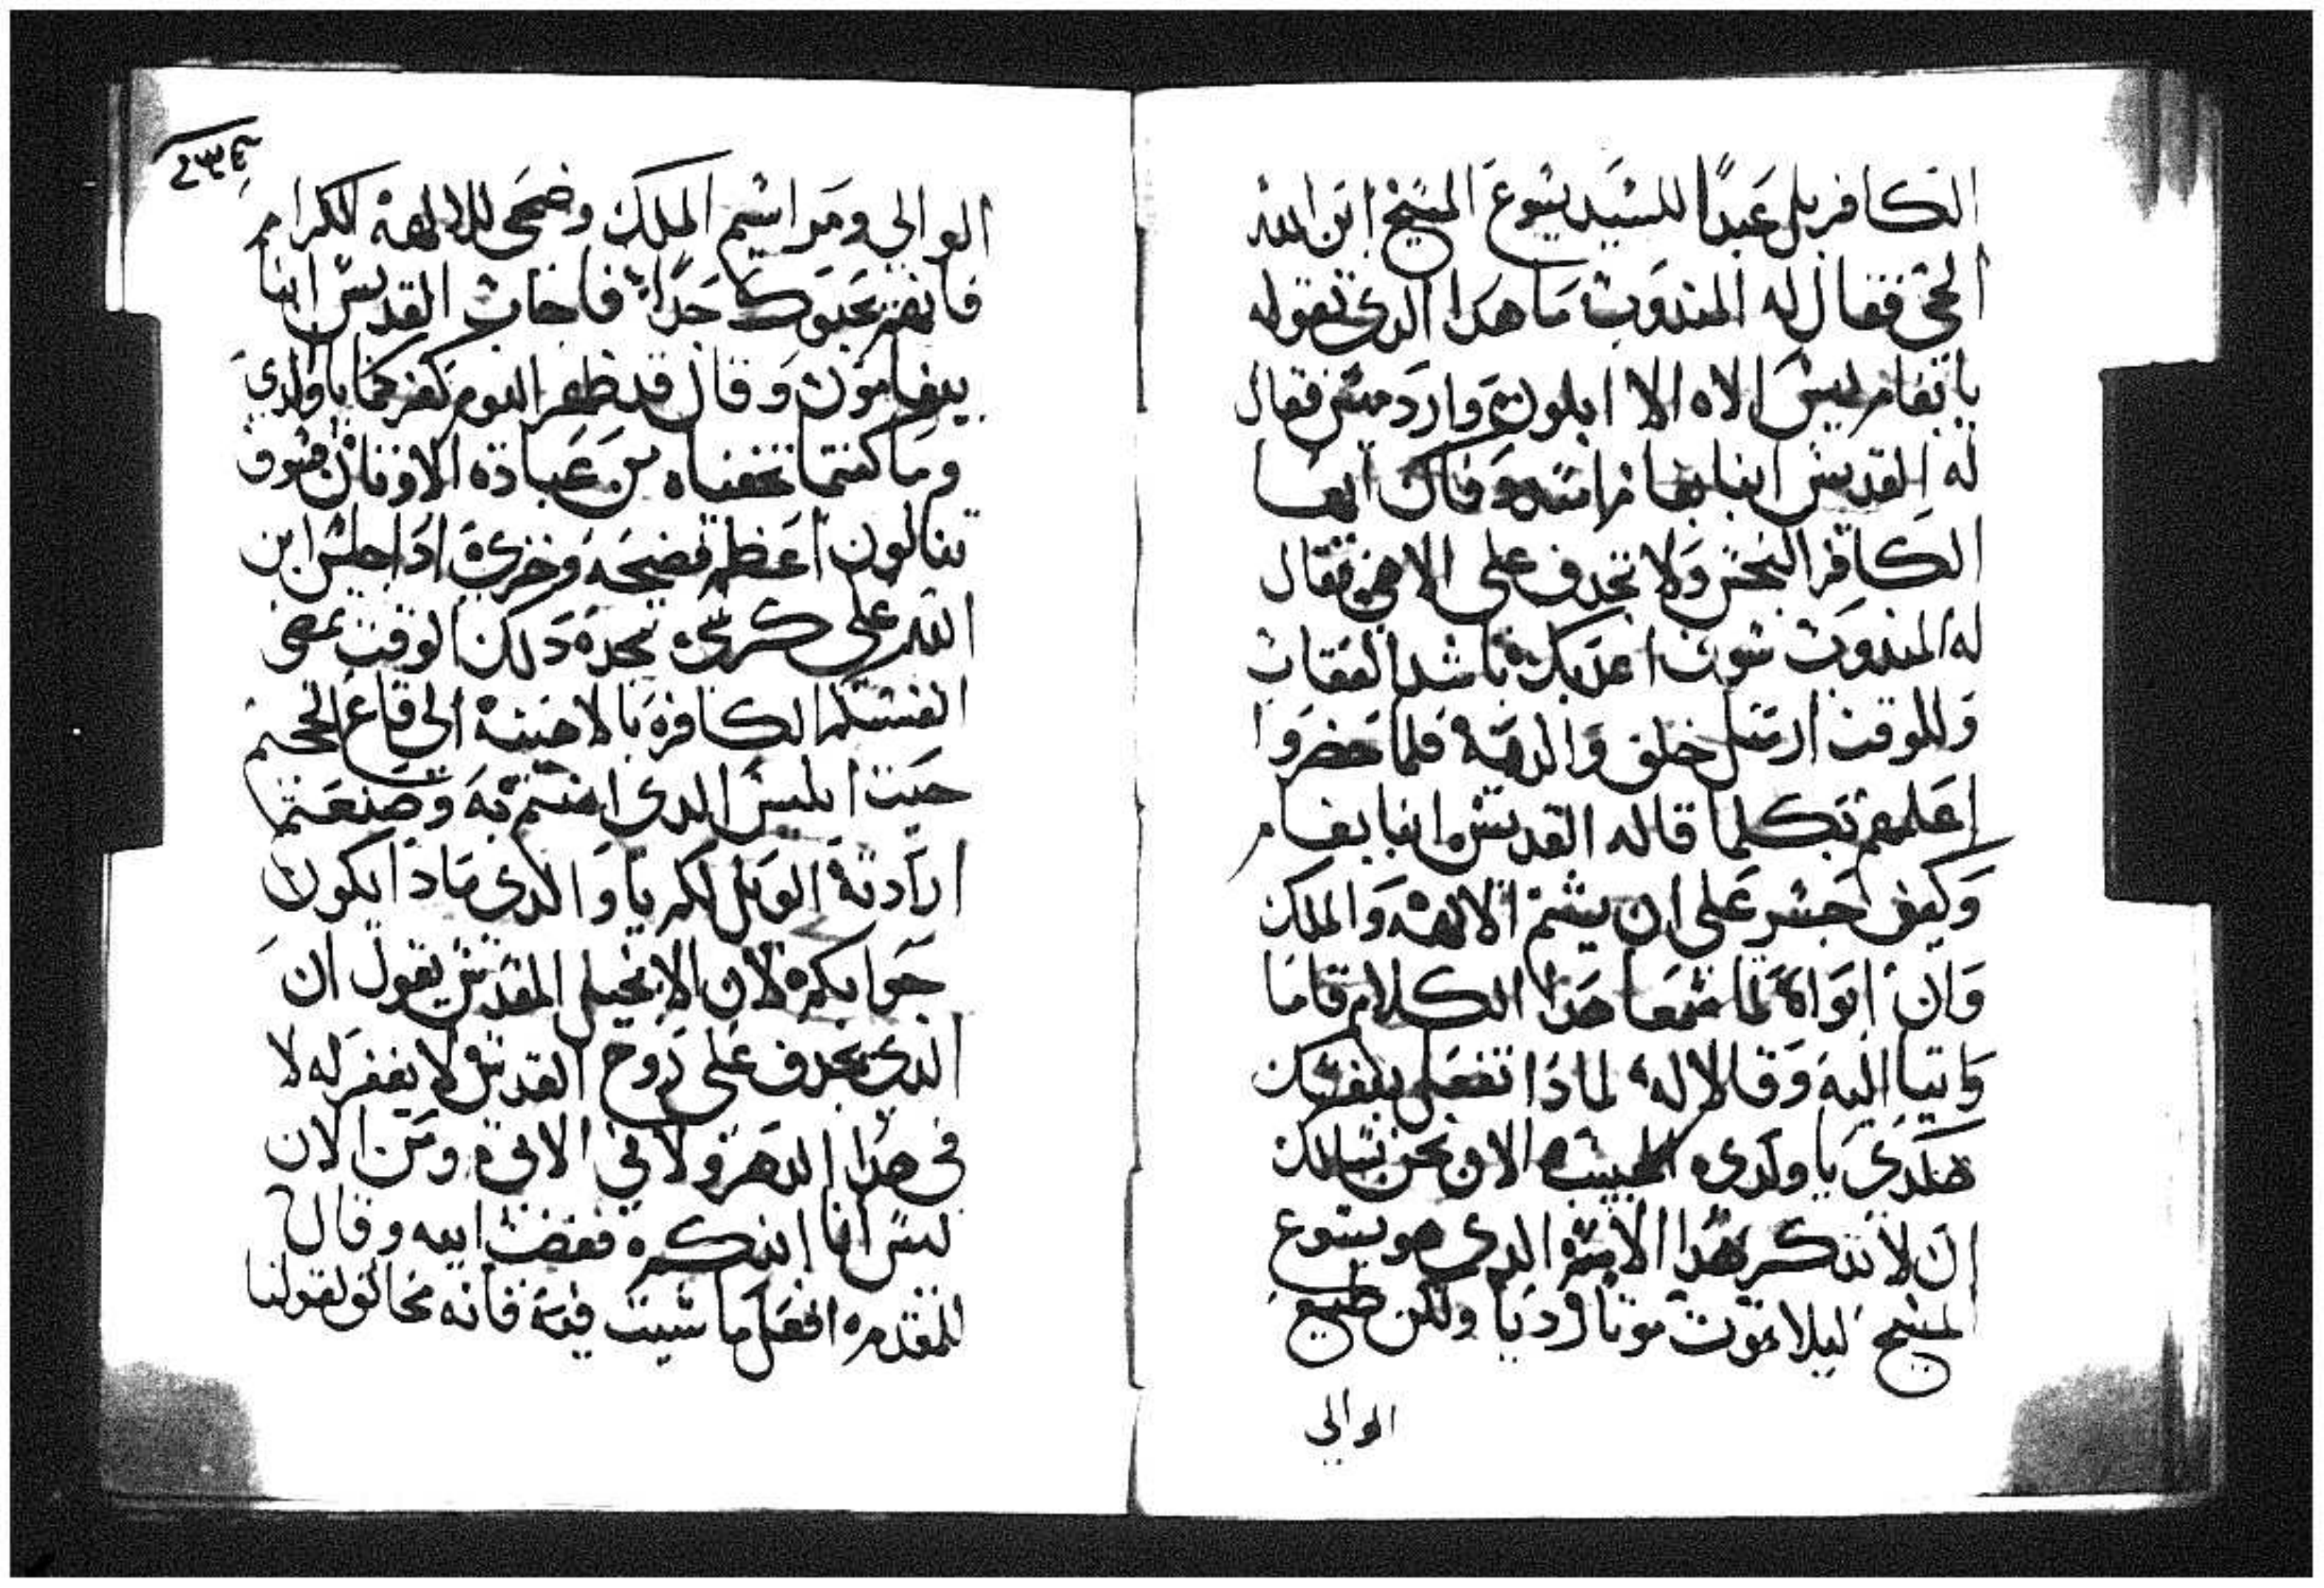 الكافر بل عبدًا للسيد يسوع المسيح ابن الله
الحي فقال له المندوب ما هدا الدي تقوله
يا بفام ليس الاه الا ابلون وارد ميس فقال
له القديس انبا بفام ايها
الكافر النجس ولا تجدف على الاهي فقال
له المندوب سوف اعدبك باشد العقاب
وللوقت ارسل خلف والديه فلما حضروا
اعلمهم بكلما قاله القديس انبا بفام
وكيف اجسر على ان يشتم الالهه والملك
وان ابواه لما سمعا هدا الكلام قاما
واتيا اليه وقالا له لمادا تفعل بنفسك
هكدي يا ولدي الحبيب الان نحن نسالك
ان لا تدكر هدا الاسم الدي هو يسوع
المسيح ليلا تموت موتا رديا ولكن طيع
الوالي
٢٣٤
الوالي ومراسيم الملك وضحي للالهة الكرام
فانهم يحبوك جدًا فاجاب القديس انبا
بيفامون وقال قد ظهر اليوم كفركما يا والدي
وما كنتما تخفياه من عبادة الاوثان فسوف
تنالون اعظم فضيحة وخزي ادا جلس ابن
الله على كرسي مجده دلك الوقت تمضى
انفسكما الكافره بالاحينة الى قاع الجحيم
حيت ابليس الدى امنتم به وصنعتما
ارادته الويل لكم يا والدي مادا يكون
جوابكم لان الانجيل المقدس يقول ان
الدى يجدف على روح القدس لا يغفر له لا
في هدا الدهر ولا في الاتي ومن الان
ليس انا ابنكم فغضب ابيه وقال
للمقدم افعل ما شيت فيه فانه مخالف لقولنا